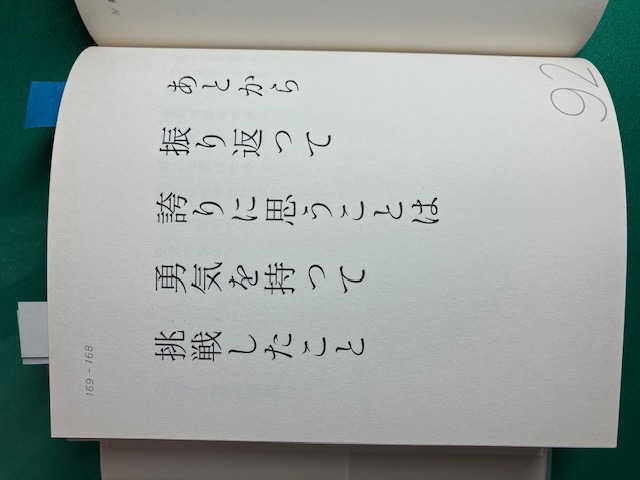 92
あとから
振り返って
誇りに思うことは
勇気を持って
挑戦したこと
169 – 168